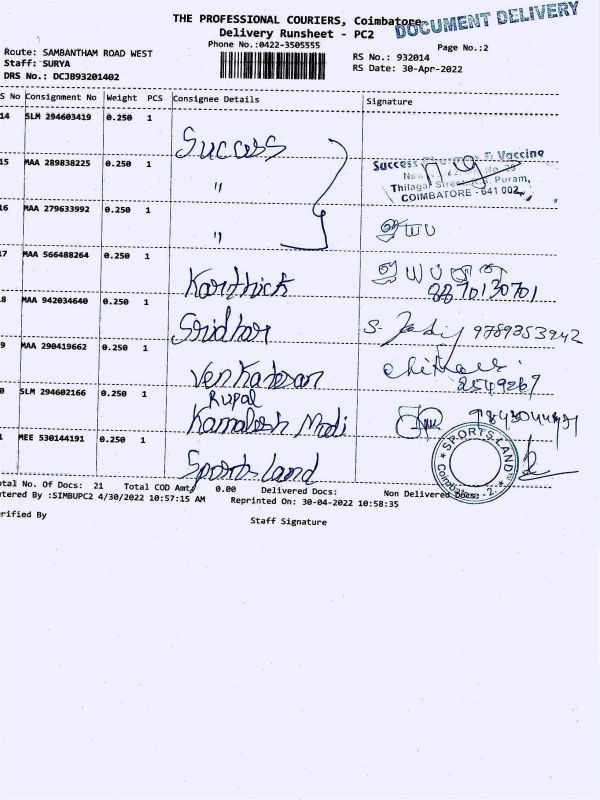 THE PROFESSIONAL COURIERS, Coimbatore
DOCUMENT DELIVERY
Delivery Runsheet - PC2
Phone No.:0422-3505555
Page No.:2
Route: SAMBANTHAM ROAD WEST
RS No.: 932014
Staff: SURYA
RS Date: 30-Apr-2022
DRS No.: DCJB93201402
S No Consignment No Weight PCS Consignee Details Signature
14 SLM 294603419 0.250 1
Success
15 MAA 289838225 0.250 1 "
Success & Vaccine
Thilagar Street, Puram,
COIMBATORE - 641 002
16 MAA 279633992 0.250 1 "
7 MAA 566488264 0.250 1
Karthick 8870130701
8 MAA 942034640 0.250 1
Sridhar 9789353942
9 MAA 290419662 0.250 1
Venkatesan 2549267
0 SLM 294602166 0.250 1
Rupal
Kamalesh Modi
MEE 530144191 0.250 1
Sports Land
* SPORTS LAND * Coimbatore - 2.
otal No. Of Docs: 21 Total COD Amt/ 0.00 Delivered Docs: Non Delivered Docs:
tered By :SIMBUPC2 4/30/2022 10:57:15 AM Reprinted On: 30-04-2022 10:58:35
erified By
Staff Signature